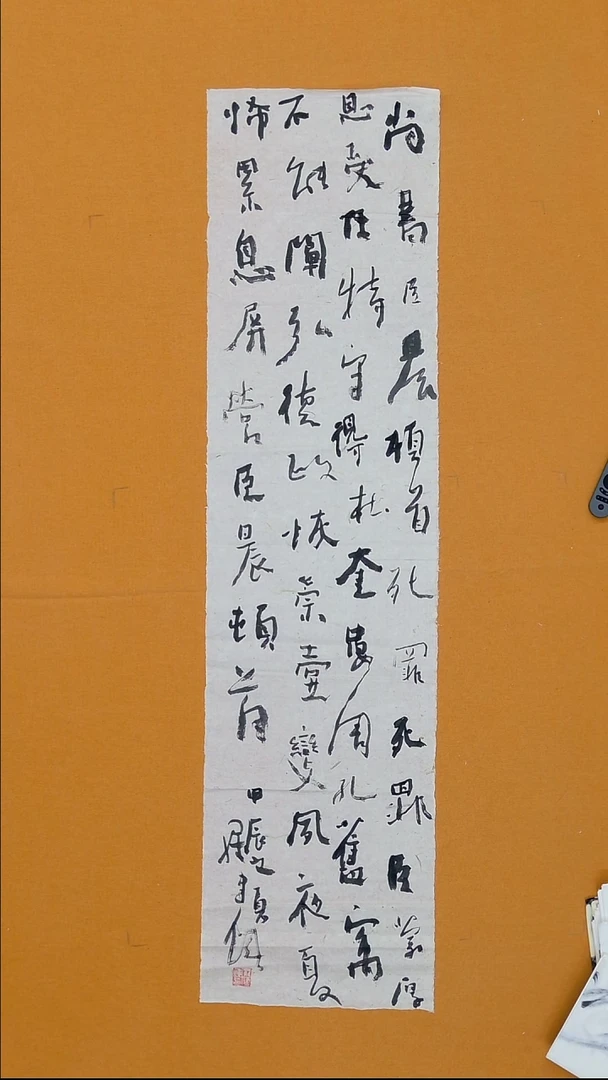 尚書臣晨頓首死罪死罪臣蒙厚
恩受任符守得在奎婁周孔舊寓
不能闡弘德政恢崇壹變夙夜憂
怖累息屏營臣晨頓首
甲